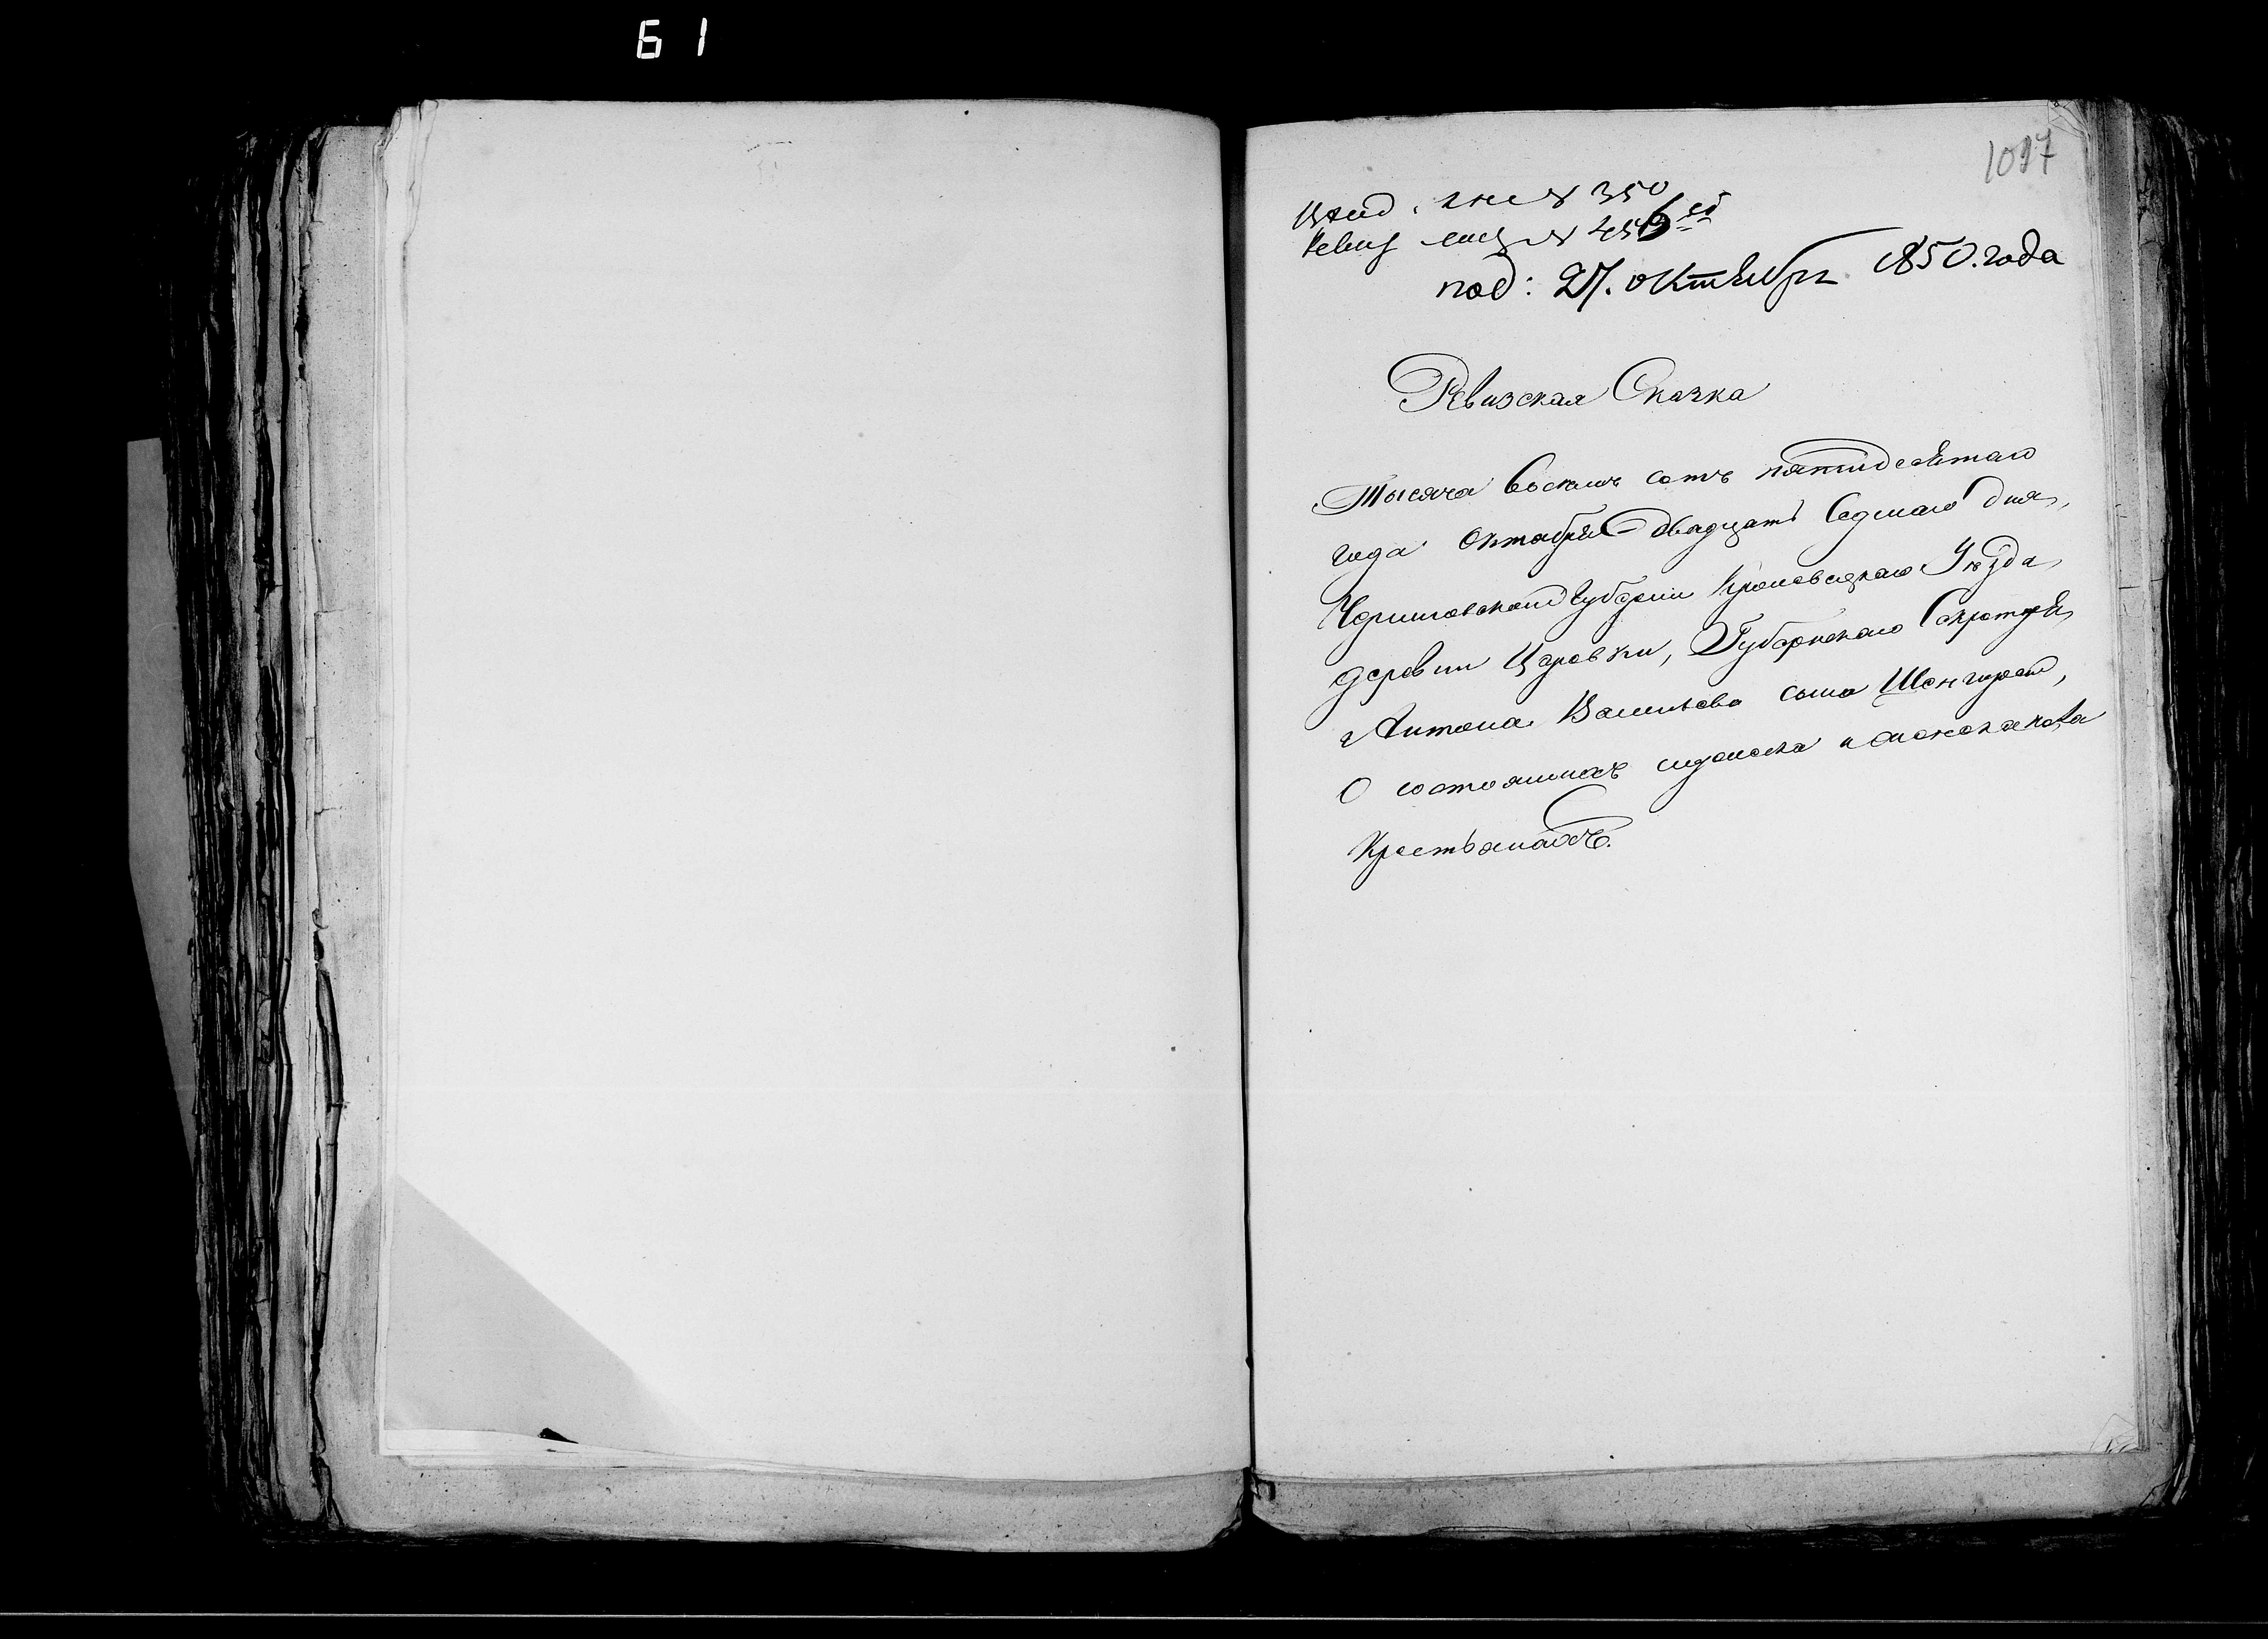 61
1017
№ 350
Ревиз № 456
под: 27. октября 1850. года
Ревизская Сказка
Тысяча Восемь сотъ пятидесятаго
года Октября двадцать Седмаго дня,
Черниговской Губернии Кролевецкаго Уезда
деревни Царовки, Губернскаго Секретаря
Антона Васильева сына Шенгерей,
О состоящихъ мужеска и женска пола
Крестьянахъ.